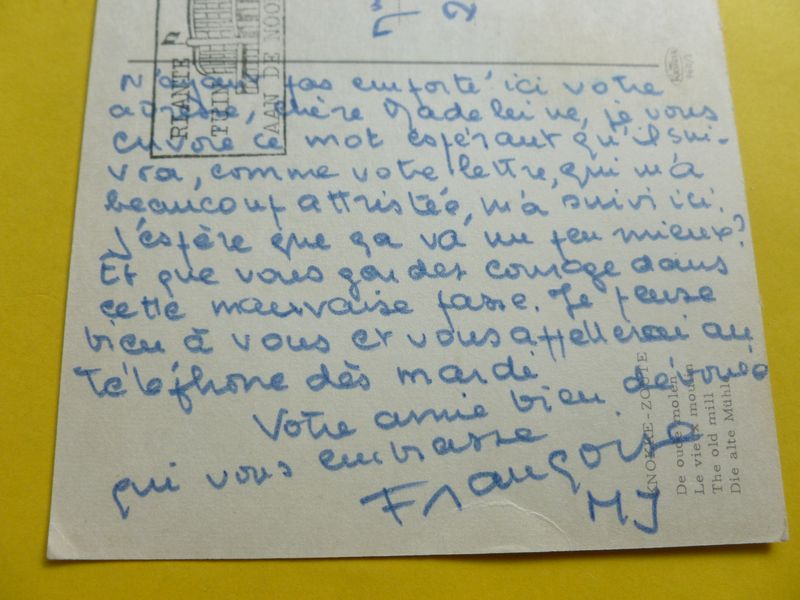 RIANTE
TUIN
AAN DE NOOR
7
2
N'ayant pas emporté ici votre
adresse, chère Madeleine, je vous
envoie ce mot espérant qu'il sui-
vra, comme votre lettre, qui m'a
beaucoup attristée, m'a suivi ici.
J'espère que ça va un peu mieux?
Et que vous gardez courage dans
cette mauvaise passe. Je pense
bien à vous et vous appellerai au
téléphone dès mardi
Votre amie bien dévouée
qui vous embrasse
Françoise
MJ
KNOKKE-ZOUTE
De oude molen
Le vieux moulin
The old mill
Die alte Mühle